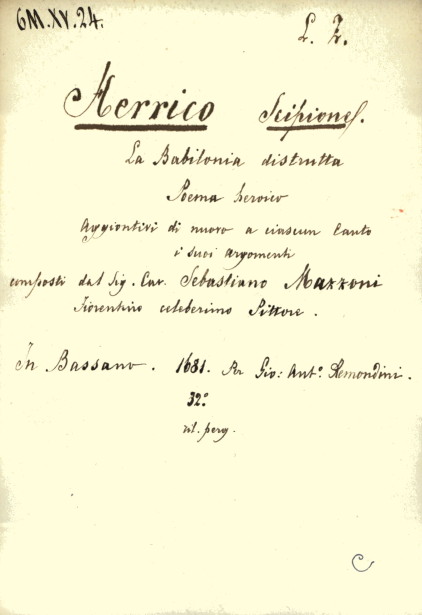 6M.XV.24.
L. 2.
Herrico Scipione.
La Babilonia distrutta
Poema heroico
Aggiontivi di nuovo a ciascun Canto
i suoi argomenti
composti dal Sig. Cav. Sebastiano Mazzoni
Fiorentino celeberimo Pittore.
In Bassano. 1681. Per Gio: Ant.º Remondini.
32º
ril. perg.
C